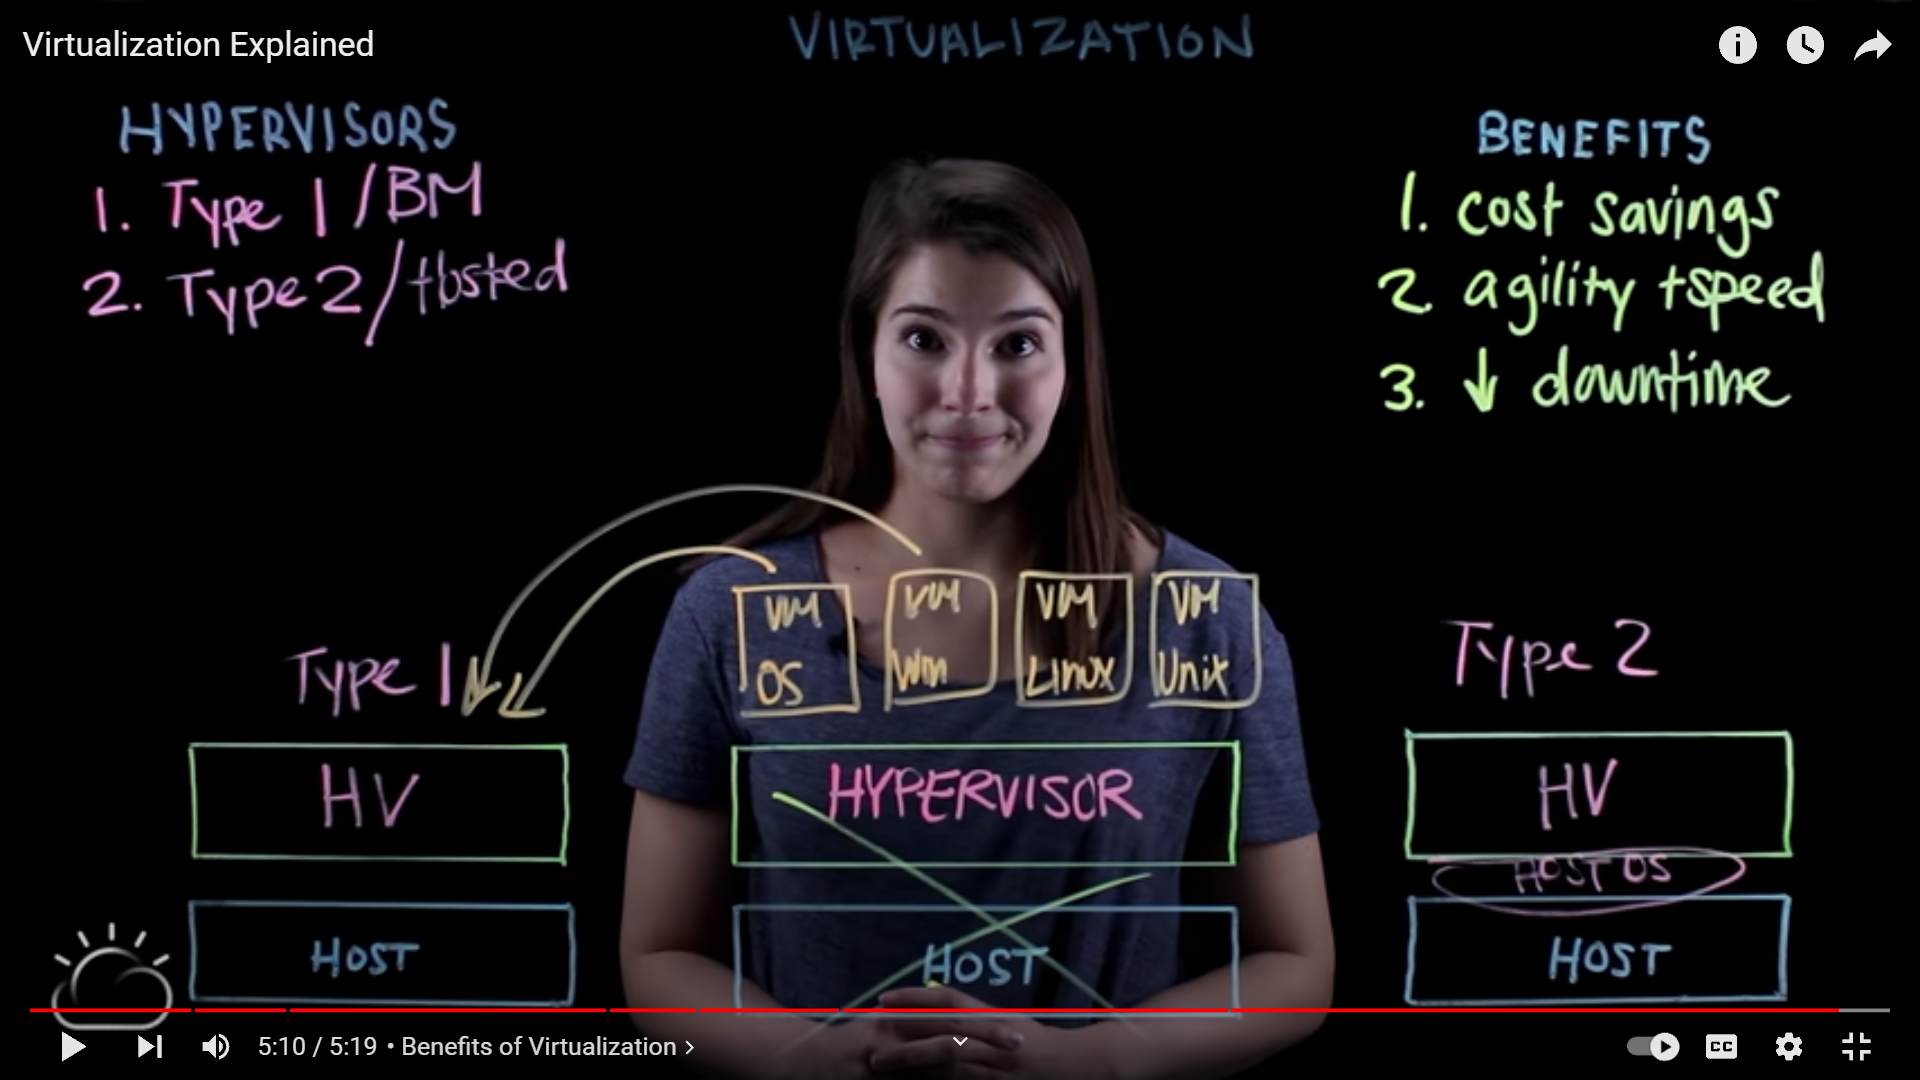 Virtualization Explained
VIRTUALIZATION
HYPERVISORS
1. Type 1/BM
2. Type 2/Hosted
BENEFITS
1. cost savings
2. agility + speed
3. ↓ downtime
VM
OS
VM
Win
VM
Linux
VM
Unix
Type 1
HV
HOST
HYPERVISOR
HOST
Type 2
HV
HOST OS
HOST
5:10 / 5:19 • Benefits of Virtualization >
CC